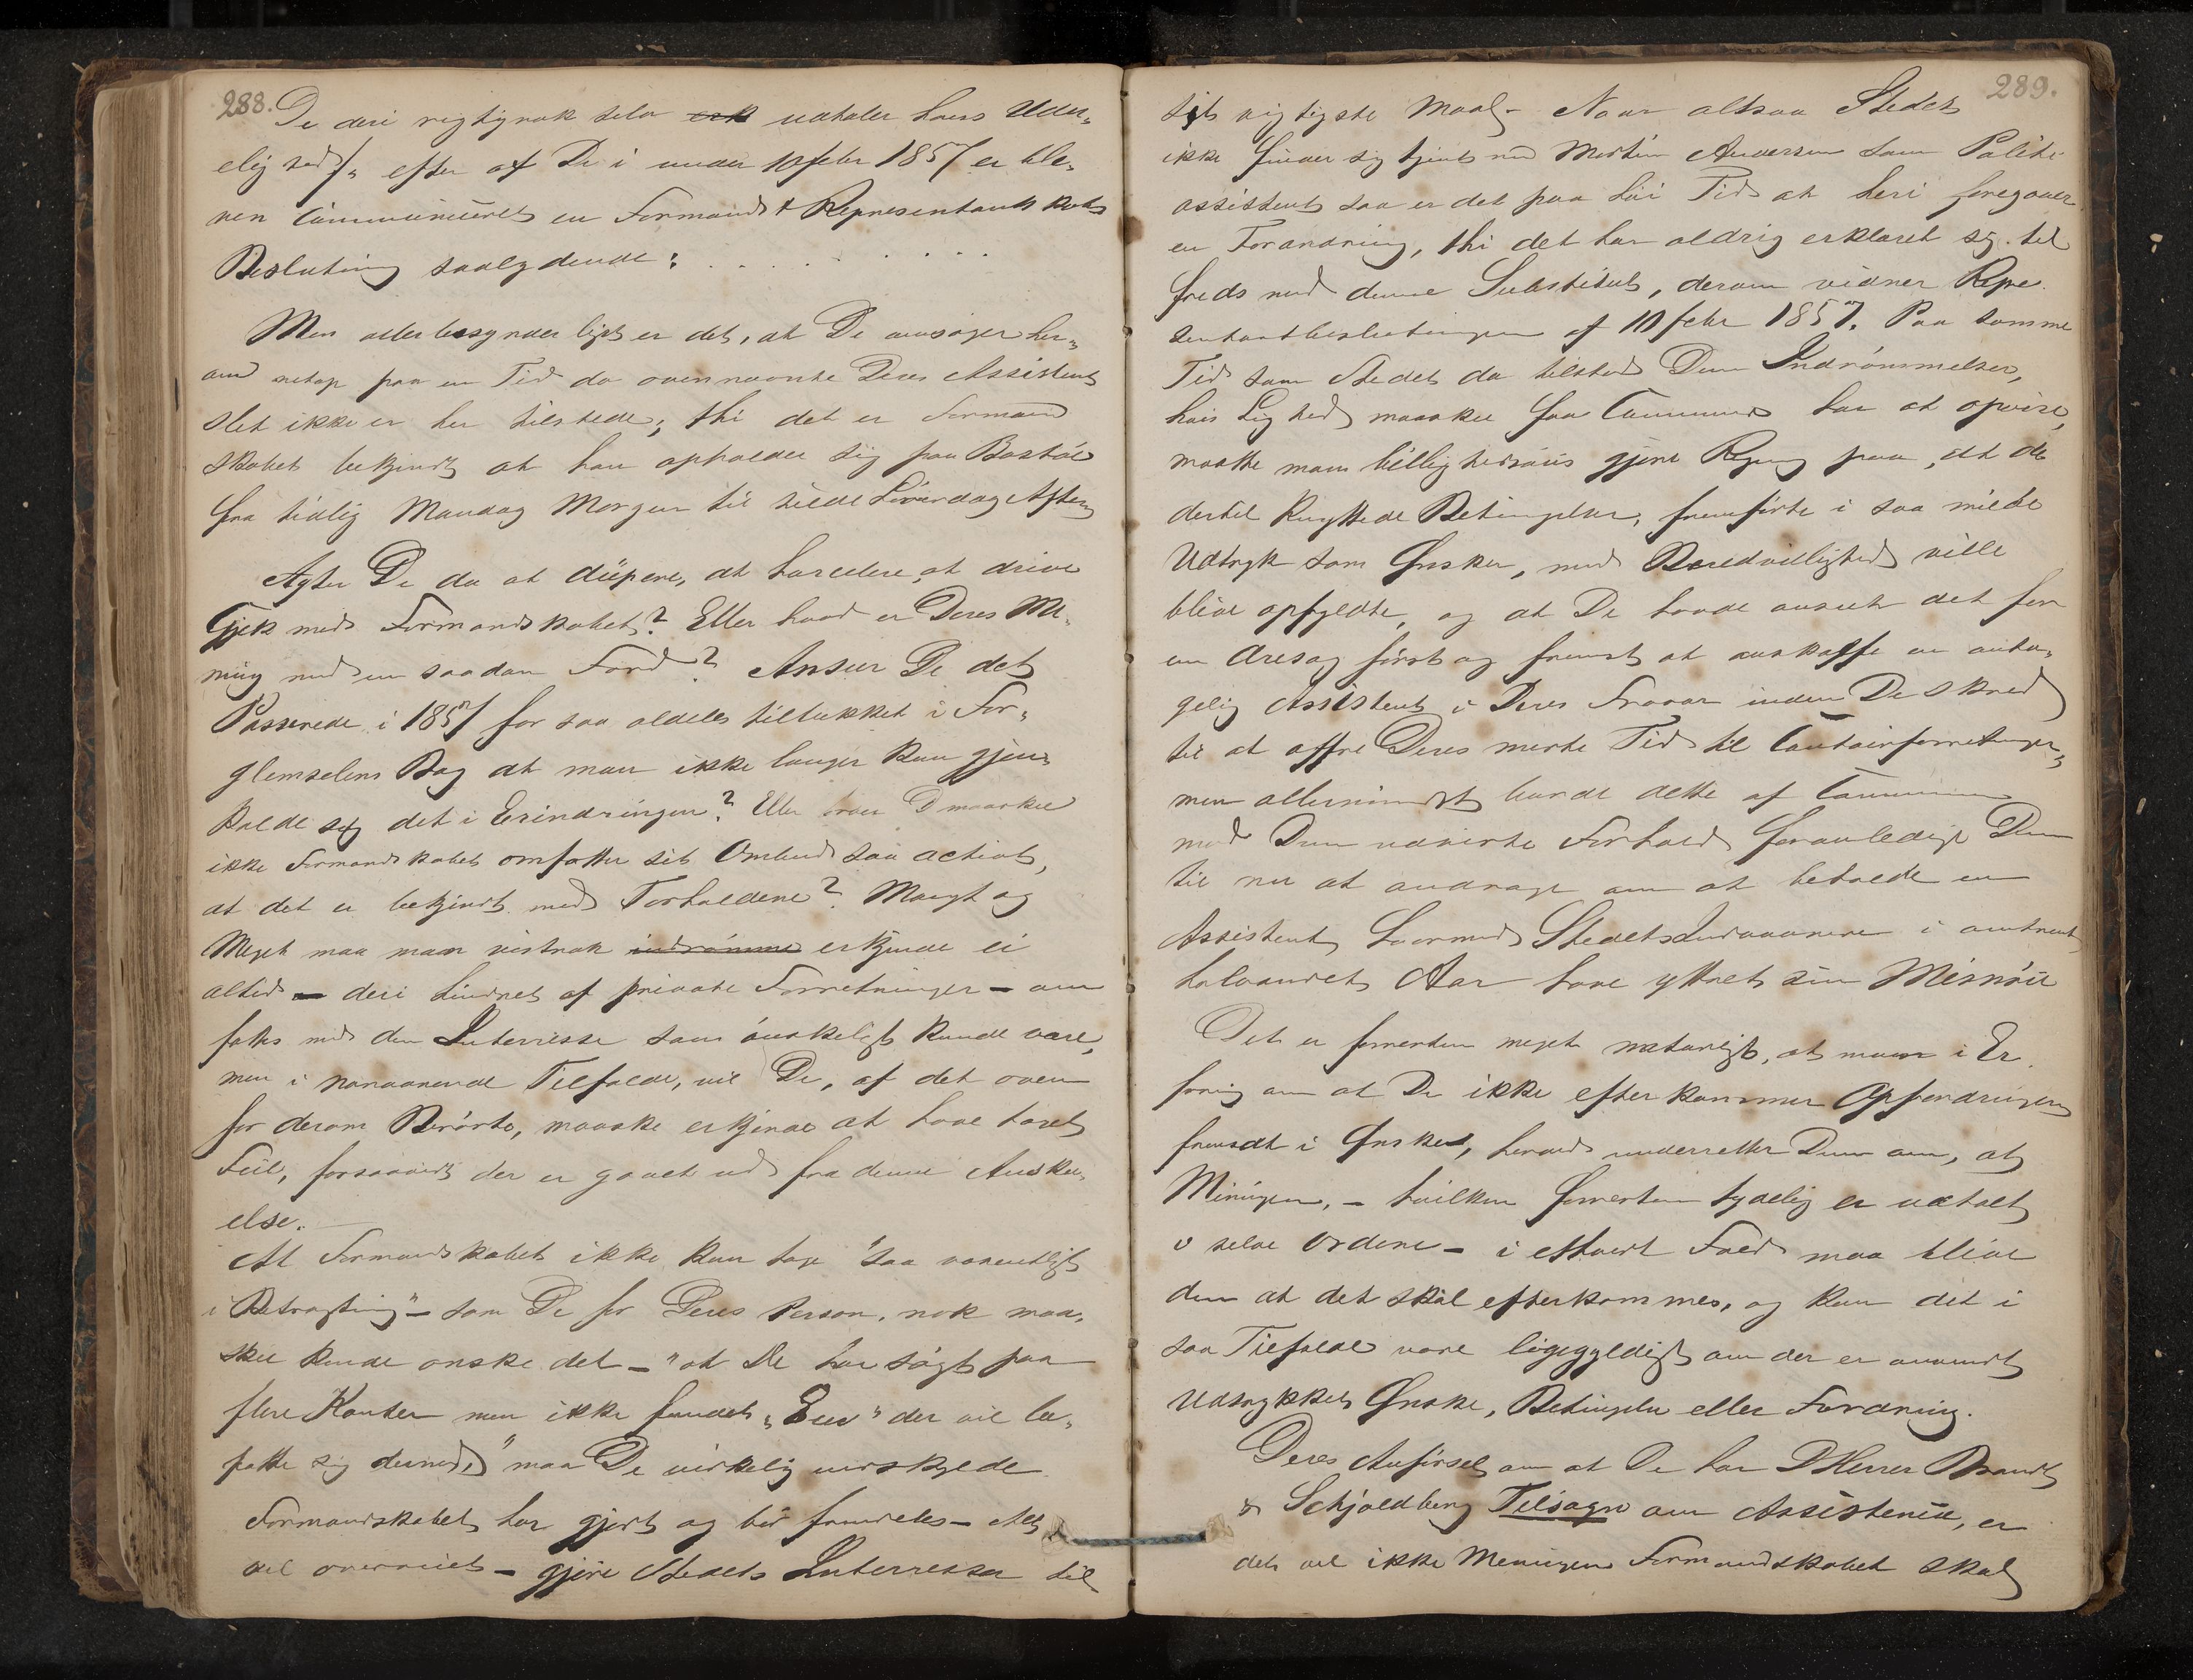 288.
De deri rigtignok selv udtaler hans Udue„
elighed f„ efter at De i under 10 febr 1857 er ble„
ven Communiceret en Formands & Representantskabs
Beslutning saalydende: . . . . . . . .
Men allerbesynderligst er det, at De ansøger her„
om netop paa en Tid da ovennævnte Deres Assistent
slet ikke er her tilstede; thi det er Formand
skabet bekjendt at han opholder sig paa Bastöe
fra tidlig Mandag Morgen til silde Löverdag Aften
Agter De da at düpere, at harcelere, at drive
Gjek med Formandskabet? Eller hvad er Deres Me„
ning med en saadan Færd? Anseer De det
Passerede i 1857 for saa aldeles tillukket i For„
glemselens Bog at man ikke længer kan gjen„
kalde sig det i Erindringen? Eller troer D maaskee
ikke Formandskabet omfatter sit Ombud saa activt,
at det er bekjendt med Forholdene? Mangt og
Meget maa man vistnok indrømme erkjende ei
altid – deri hindret af private Forretninger – om
fattes med den Interesse som önskeligt kunde være,
men i nærværende Tilfælde, vil De, af det oven
for derom Berörte, maaske erkjende at have taget
Feil, forsaavidt der er gaaet ud fra denne Anskue„
else.
At Formandskabet ikke kan tage "saa væsentligt
i Betragtning" – som De for Deres Person, nok maa„
skee kunde ønske det – "at De har sögt paa
flere Kanter men ikke fundet „Een" der vil be„
fatte sig dermed," maa De virkelig undskylde
Formandskabet har gjort og bör fremdeles – Alt
vel overveiet – gjöre Stedets Interesser til
289.
sit vigtigste Maal – Naar altsaa Stedet
ikke finder sig tjent med Martin Andersen som Politi
assistent saa er det paa höi Tid at heri foregaaer
en Forandring, thi det har aldrig erklæret sig til
freds med denne Substitut, derom vidner Repre
sentantbeslutningen af 10 febr 1857. Paa samme
Tid som Stedet da tilstod Dem Indrömmelser,
hvis Lighed maaskee faa Communer har at opvise,
maatte man billighedsviis gjöre Regning paa, at de
dertil knyttede Betingelser, fremförte i saa milde
Udtryk som Ønsker, med Beredvillighed ville
blive opfyldte, og at De havde anseet det for
en Æresag först og fremst at anskaffe en anta„
gelig Assistent i Deres Fravær inden De skred
til at offre Deres meste Tid til Contoirforretninger,
men allermindst burde dette af Communen
mod Dem udviste Forhold foranledige Dem
til nu at andrage om at beholde en
Assistent, hvormed Stedets Indvaanere i omtrent
halvandet Aar have yttret sin Misnöie
Det er forresten meget naturligt, at man i Er
faring om at De ikke efterkommer Opfordringen
fremsat i Ønsket, herved underretter Dem om, at
Meningen, – hvilken forresten tydelig er udtalt
i selve Ordene – i ethvert Fald maa blive
den at det skal efterkommes, og kan det i
saa Tilfælde være ligegyldigt om der er anvendt
Udtrykket Ønske, Betingelse eller Fordring.
Deres Anförsel om at De har DHerrer Brandt
& Schjoldberg Tilsagn om Assistence, er
det vel ikke Meningen Formandskabet skal